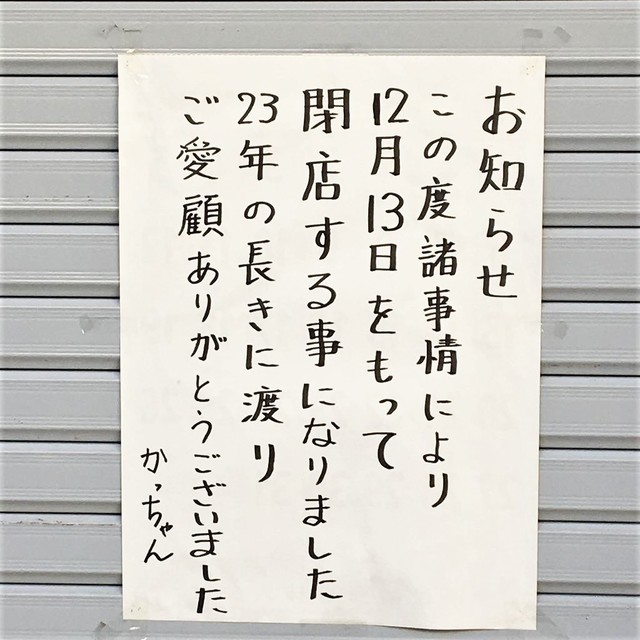 お知らせ
この度諸事情により
12月13日をもって
閉店する事になりました
23年の長きに渡り
ご愛顧ありがとうございました
かっちゃん